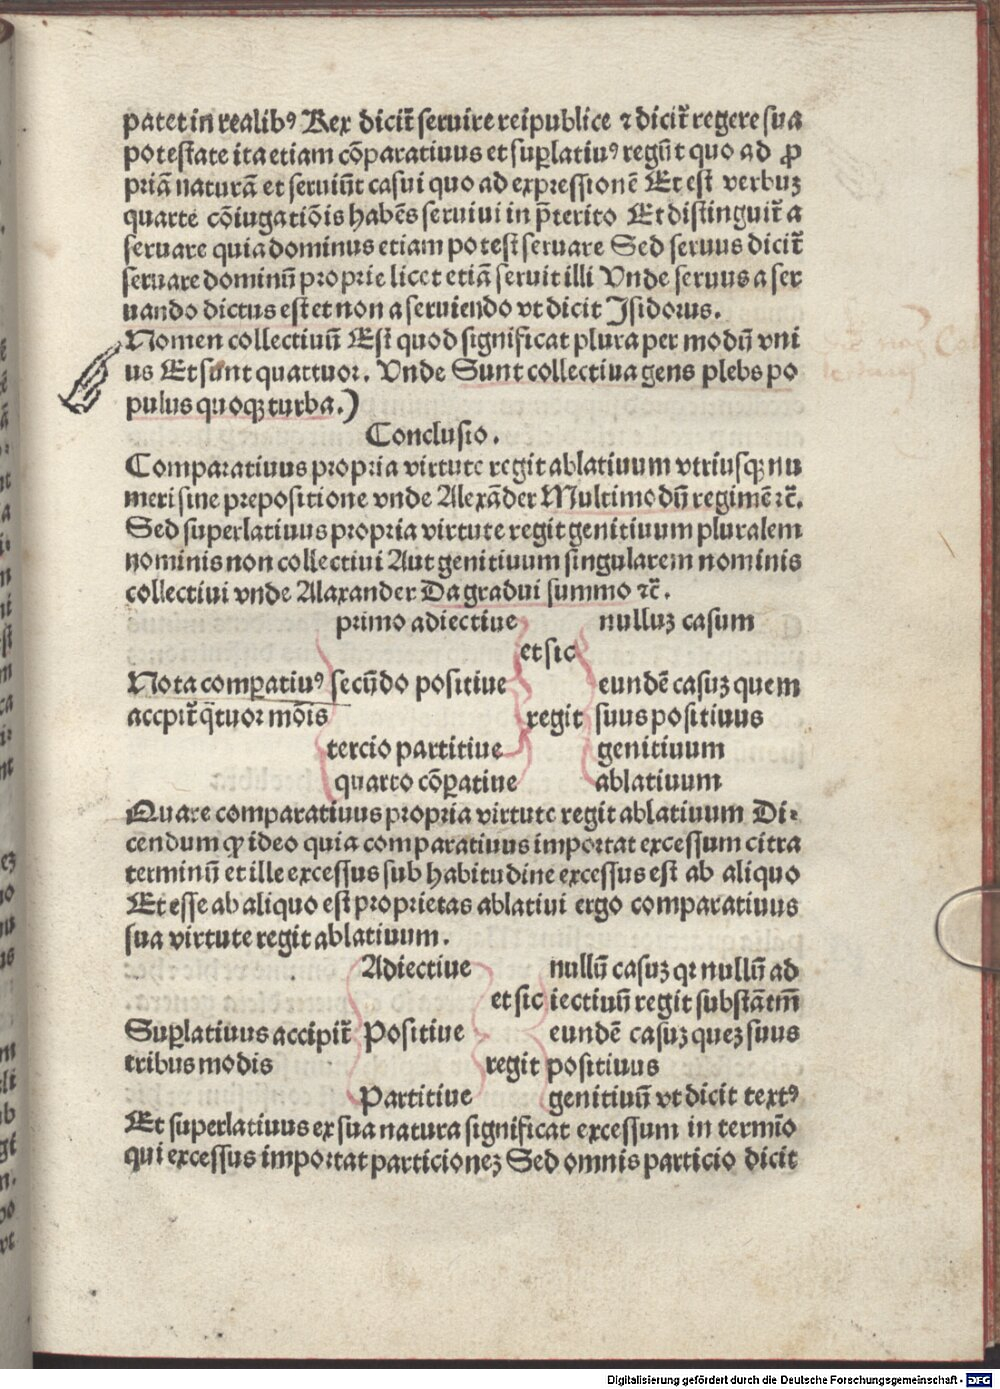 patet in realibꝰ Rex dicit̃ seruire reipublice ⁊ dicit̃ regere sua
potestate ita etiam cõparatiuus et suꝑlatiuꝰ regũt quo ad ꝓ
priã naturã et seruiũt casui quo ad expressionẽ Et est verbuȝ
quarte cõiugatiõis habẽs seruiui in p̃terito Et distinguit̃ a
seruare quia dominus etiam potest seruare Sed seruus dicit̃
seruare dominũ proprie licet etiã seruit illi Vnde seruus a ser
uando dictus est et non a seruiendo vt dicit Isidorus.
Nomen collectiuũ Est quod significat plura per modũ vni
us Et sunt quattuor. Vnde Sunt collectiua gens plebs po
pulus quoqȝ turba.)
Conclusio.
Comparatiuus propria virtute regit ablatiuum vtriusqȝ nu
meri sine prepositione vnde Alexãder Multimodũ regimẽ ⁊c̃.
Sed superlatiuus propria virtute regit genitiuum pluralem
nominis non collectiui Aut genitiuum singularem nominis
collectiui vnde Alaxander Da gradui summo ⁊c̃.
primo adiectiue nulluȝ casum
et sic
Nota comꝑatiuꝰ secũdo positiue eundẽ casuȝ quem
accpit̃ q̃tuor mõis regit suus positiuus
tercio partitiue genitiuum
quarto cõꝑatiue ablatiuum
Quare comparatiuus propria virtute regit ablatiuum Di⸗
cendum ꝙ ideo quia comparatiuus importat excessum citra
terminũ et ille excessus sub habitudine excessus est ab aliquo
Et esse ab aliquo est proprietas ablatiui ergo comparatiuus
sua virtute regit ablatiuum.
Adiectiue nullũ casuȝ qꝛ nullũ ad
et sic iectiuũ regit substãtm̃
Suꝑlatiuus accipit̃ Positiue eundẽ casuȝ queȝ suus
tribus modis regit positiuus
Partitiue genitiuũ vt dicit textꝰ
Et superlatiuus ex sua natura significat excessum in termĩo
qui excessus importat particioneȝ Sed omnis particio dicit
Digitalisierung gefördert durch die Deutsche Forschungsgemeinschaft - DFG